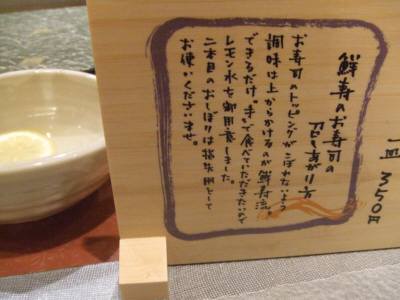 一皿 350円
鮮寿のお寿司の
召し上がり方
お寿司のトッピングがこぼれないよう
調味は上からかけるのが鮮寿流。
できるだけ、手で食べていただきたいので
レモン水を御用意しました。
二本目のおしぼりは指先用として
お使いくださいませ。